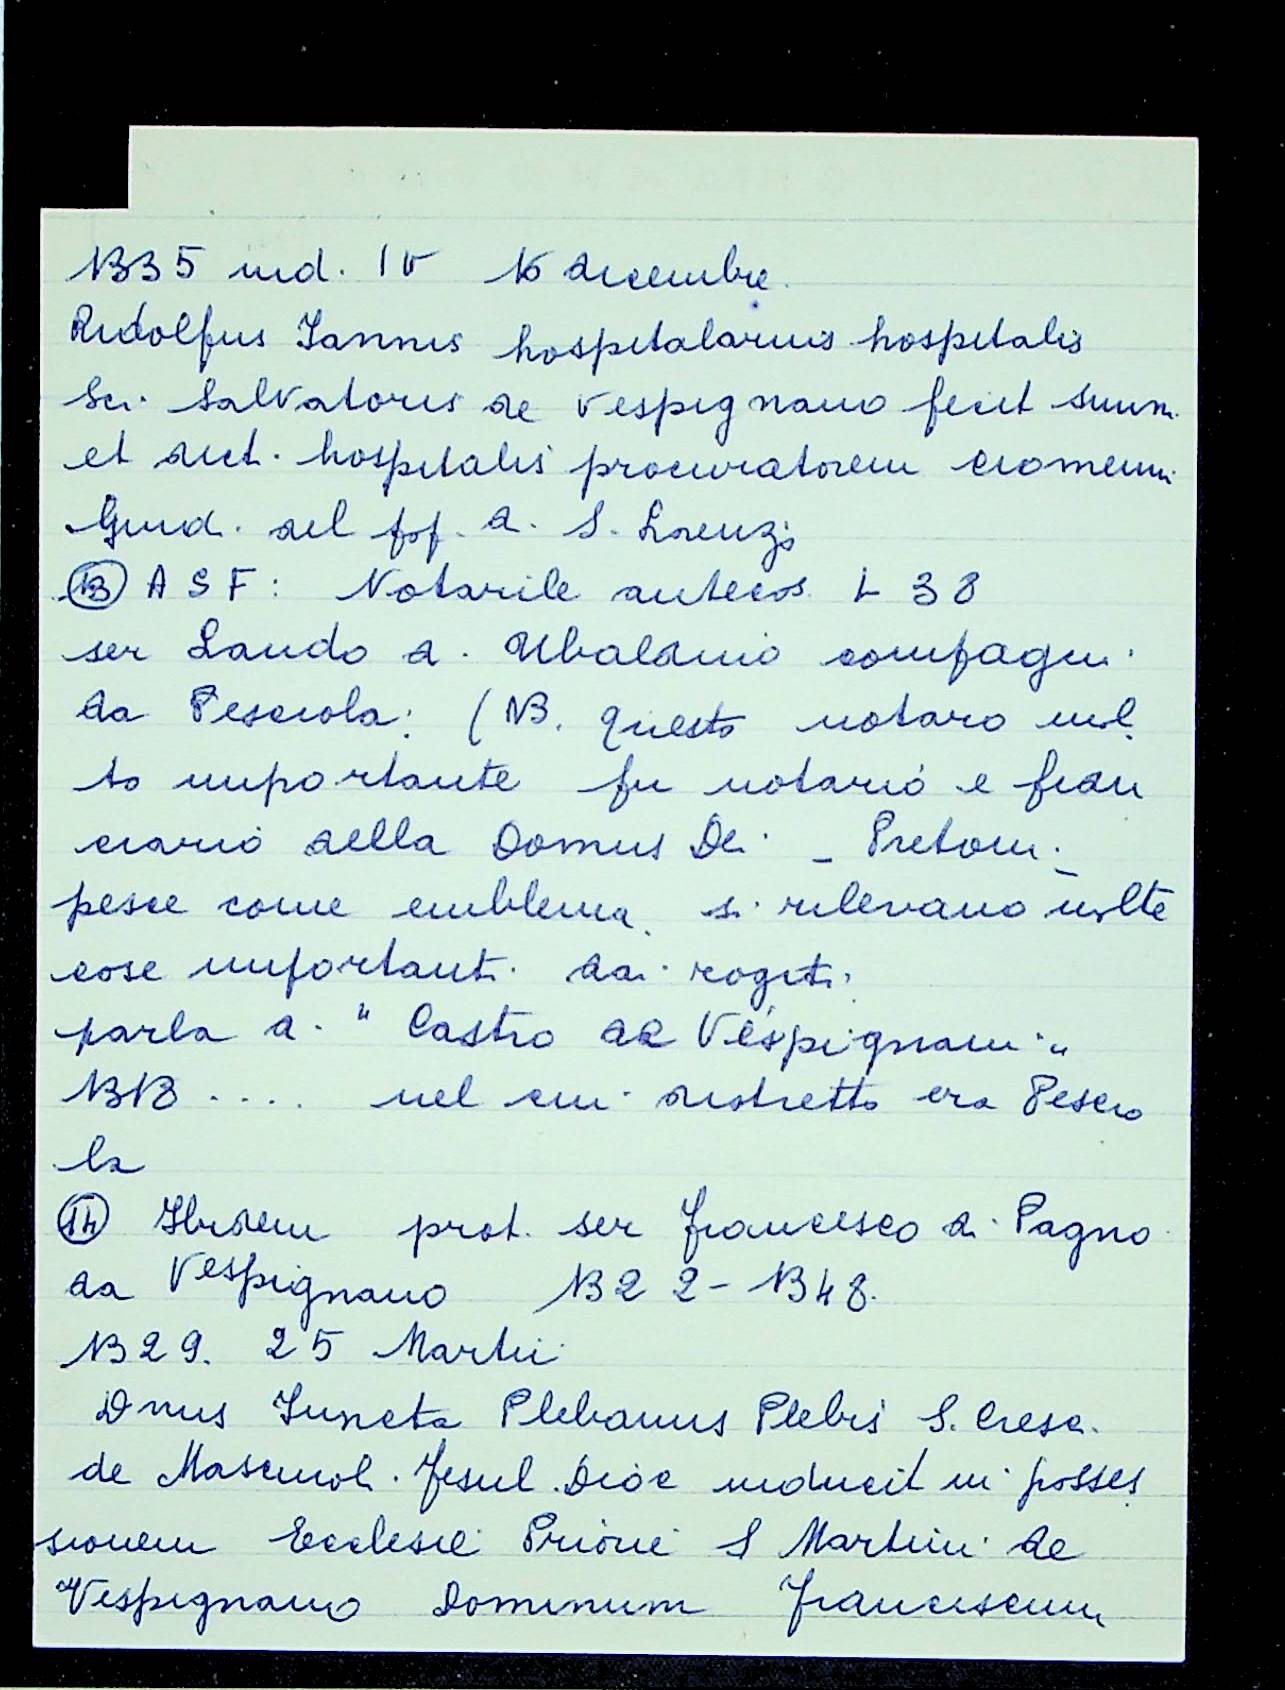 1335 ind. IV 16 dicembre.
Ridolfus Iannis hospitalarius hospitalis
Sci. Salvatoris de Vespignano fecit suum
et dict. hospitalis procuratorem
Guid. del fof. d. S. Lorenzo
(13) A S F: Notarile antecos. L 38
ser Lando di Ubaldino compagni
da Pesciola: (NB. questo notaro mol
to importante fu notario e fidu
ciario della Domus Dei - Pretoni -
pesce come emblema. si rilevano molte
cose importanti dai rogiti.
parla di " Castro de Vespignani "
NB NB .... nel cui distretto era Pescio
la
(14) Ibidem prot. ser Francesco di Pagno
da Vespignano 1322-1348.
1329. 25 Martii
Dnus Iuncta Plebanus Plebis S. Cresc.
de Mascinol. Fesul. Dioc inducit in posses
sionem Ecclesie Priorie S Martini de
Vespignano Dominum Franciscum